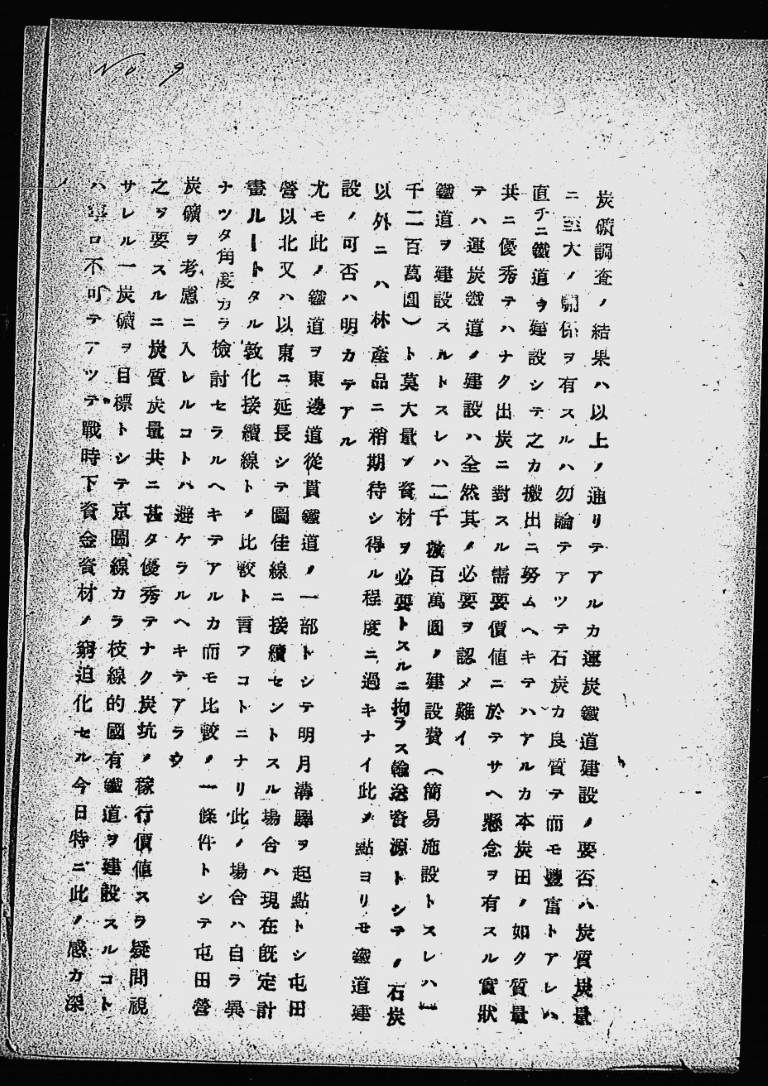 No. 9
炭礦調査ノ結果ハ以上ノ通リテアルカ運炭鐵道建設ノ要否ハ炭質炭量
ニ至大ノ關係ヲ有スルハ勿論テアツテ石炭カ良質テ而モ豐富トアレハ
直チニ鐵道ヲ建設シテ之カ搬出ニ努ムヘキテハアルカ本炭田ノ如ク質量
共ニ優秀テハナク出炭ニ對スル需要價値ニ於テサヘ懸念ヲ有スル實狀
テハ運炭鐵道ノ建設ハ全然其ノ必要ヲ認メ難イ
鐵道ヲ建設スルトスレハ二千數百萬圓ノ建設費(簡易施設トスレハ一
千二百萬圓)ト莫大量ノ資材ヲ必要トスルニ拘ラス輸送資源トシテノ石炭
以外ニハ林産品ニ稍期待シ得ル程度ニ過キナイ此ノ點ヨリモ鐵道建
設ノ可否ハ明カテアル
尤モ此ノ鐵道ヲ東邊道從貫鐵道ノ一部トシテ明月溝驛ヲ起點トシ屯田
營以北又ハ以東ニ延長シテ圖佳線ニ接續セントスル場合ハ現在既定計
畫ルートタル敦化接續線トノ比較ト言フコトニナリ此ノ場合ハ自ラ異
ナツタ角度カラ檢討セラルヘキテアルカ而モ比較ノ一條件トシテ屯田營
炭礦ヲ考慮ニ入レルコトハ避ケラルヘキテアラウ
之ヲ要スルニ炭質炭量共ニ甚タ優秀テナク炭坑ノ稼行價値スラ疑問視
サレル一炭礦ヲ目標トシテ京圖線カラ枝線的國有鐵道ヲ建設スルコト
ハ 不可テアツテ戰時下資金資材ノ窮迫化セル今日特ニ此ノ感カ深